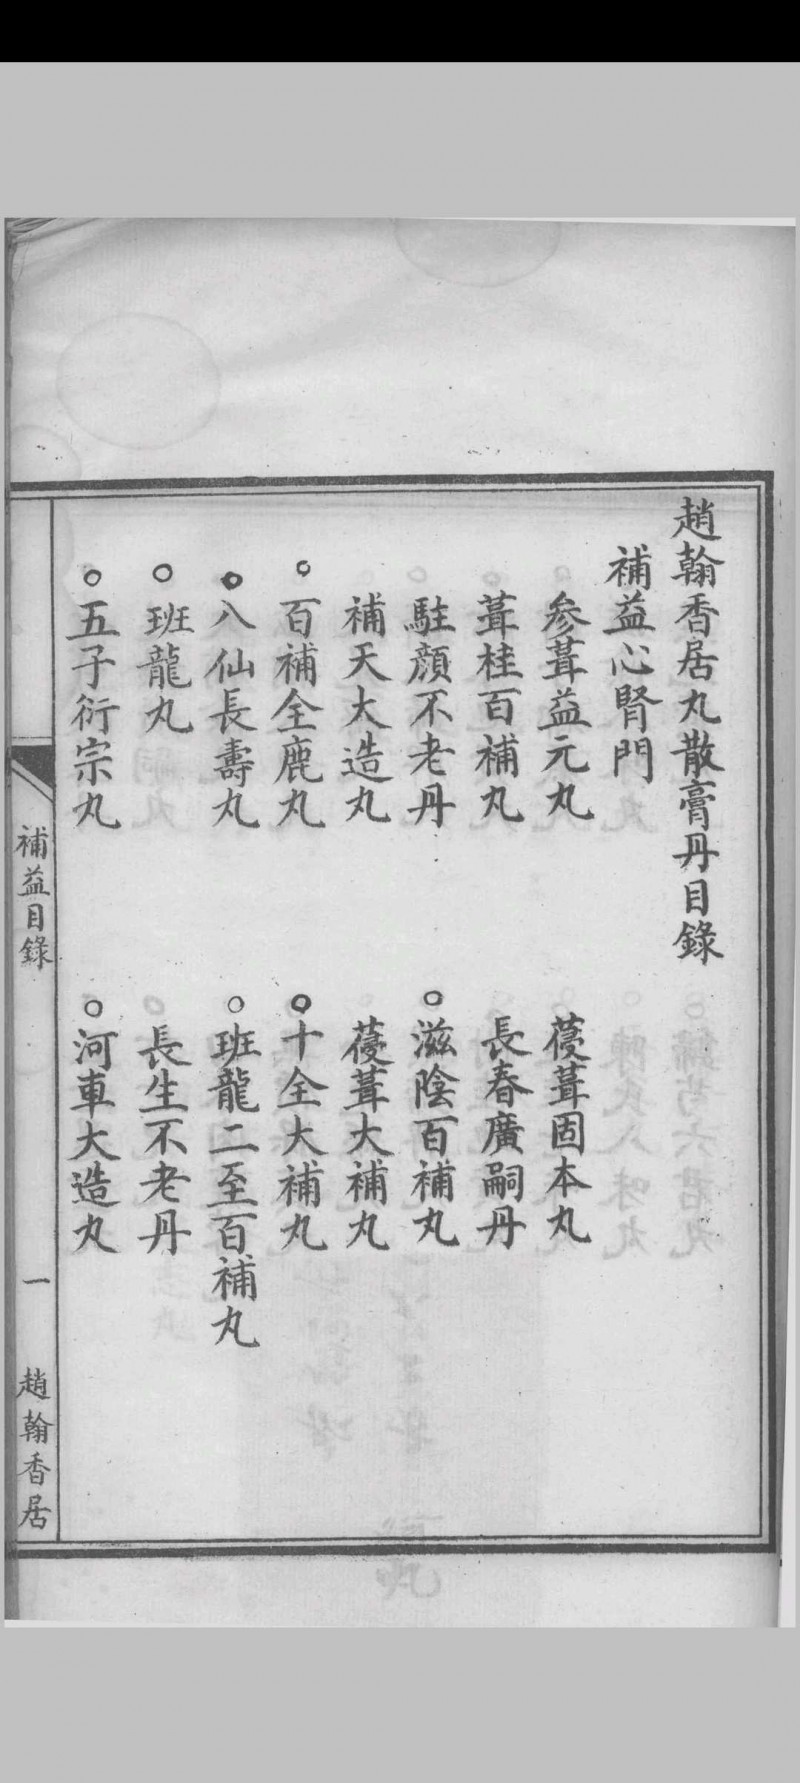 趙翰香居丸散膏丹目錄
補益心腎門
參茸益元丸
葠茸固本丸
茸桂百補丸
長春廣嗣丹
駐顏不老丹
○滋陰百補丸
補天大造丸
葠茸大補丸
○百補全鹿丸
○十全大補丸
○八仙長壽丸
○班龍二至百補丸
○班龍丸
長生不老丹
○五子衍宗丸
○河車大造丸
補益目錄
一
趙翰香居